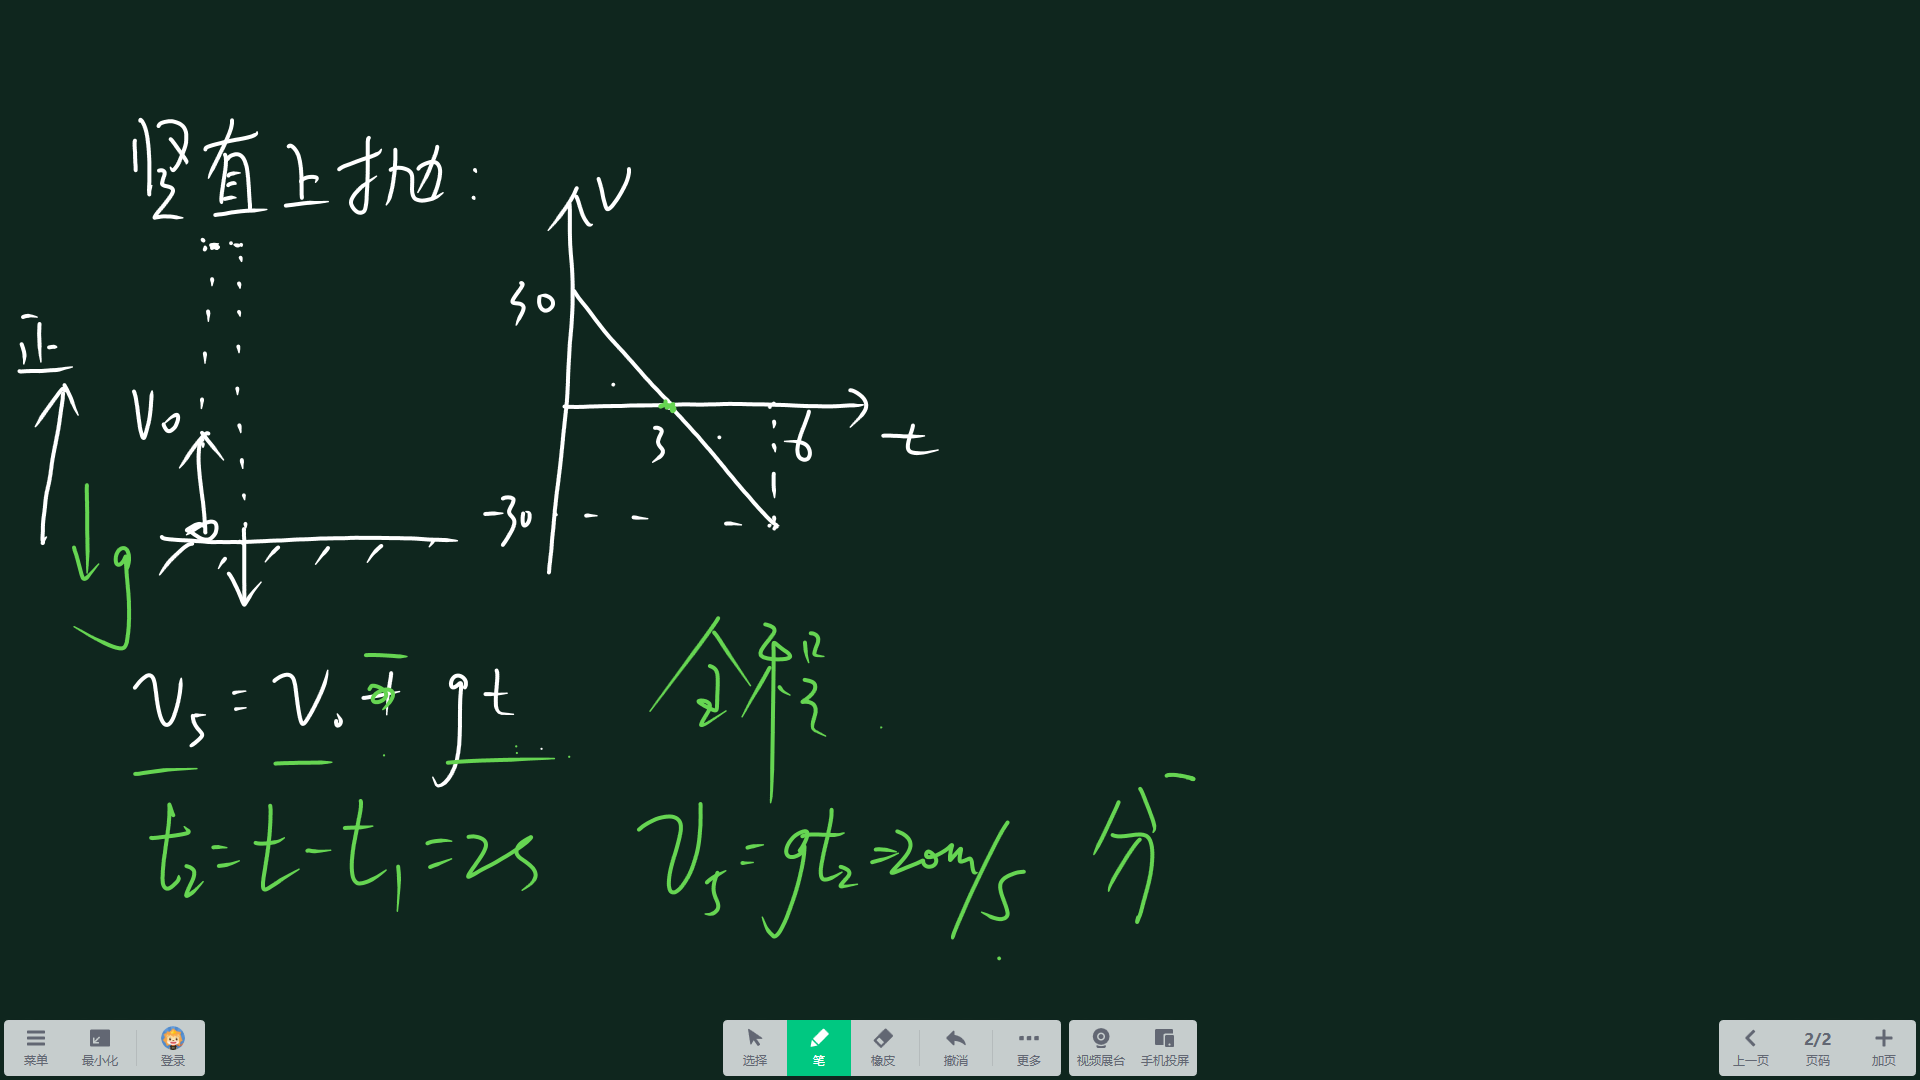 竖直上抛:
V
30
正
V₀
3
6
t
-30
g
v₅ = v₀ - gt
全程
t₂ = t - t₁ = 2s
v₅ = gt₂ = 20m/s
分
菜单
最小化
登录
选择
笔
橡皮
撤消
更多
视频展台
手机投屏
上一页
2/2
页码
加页